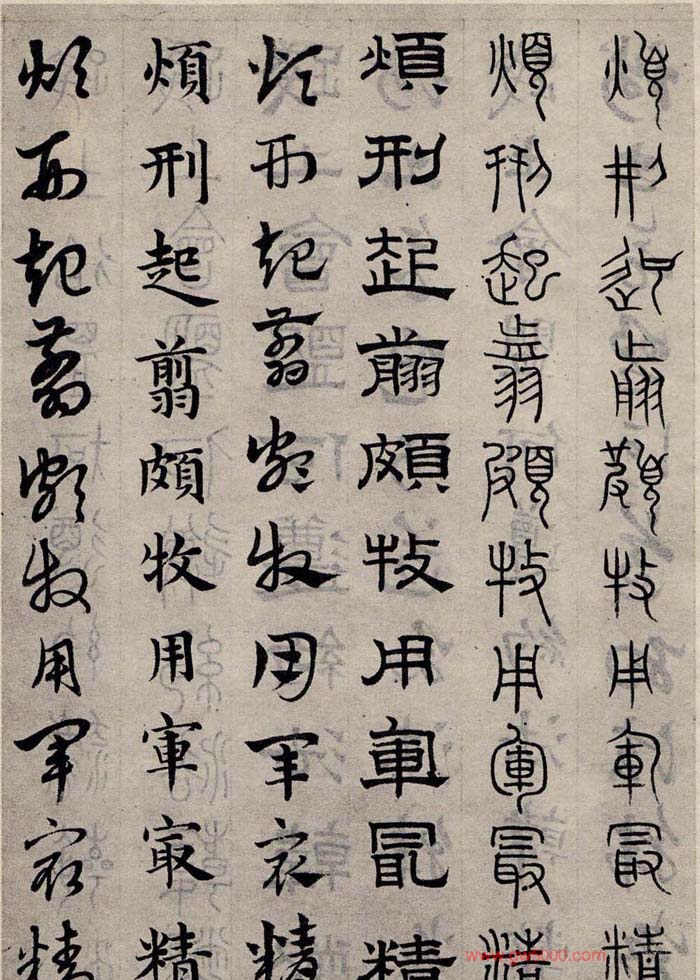 煩刑起翦頗牧用軍最精
煩刑起翦頗牧用軍最精
煩刑起翦頗牧用軍最精
煩刑起翦頗牧用軍最精
煩刑起翦頗牧用軍最精
煩刑起翦頗牧用軍最精